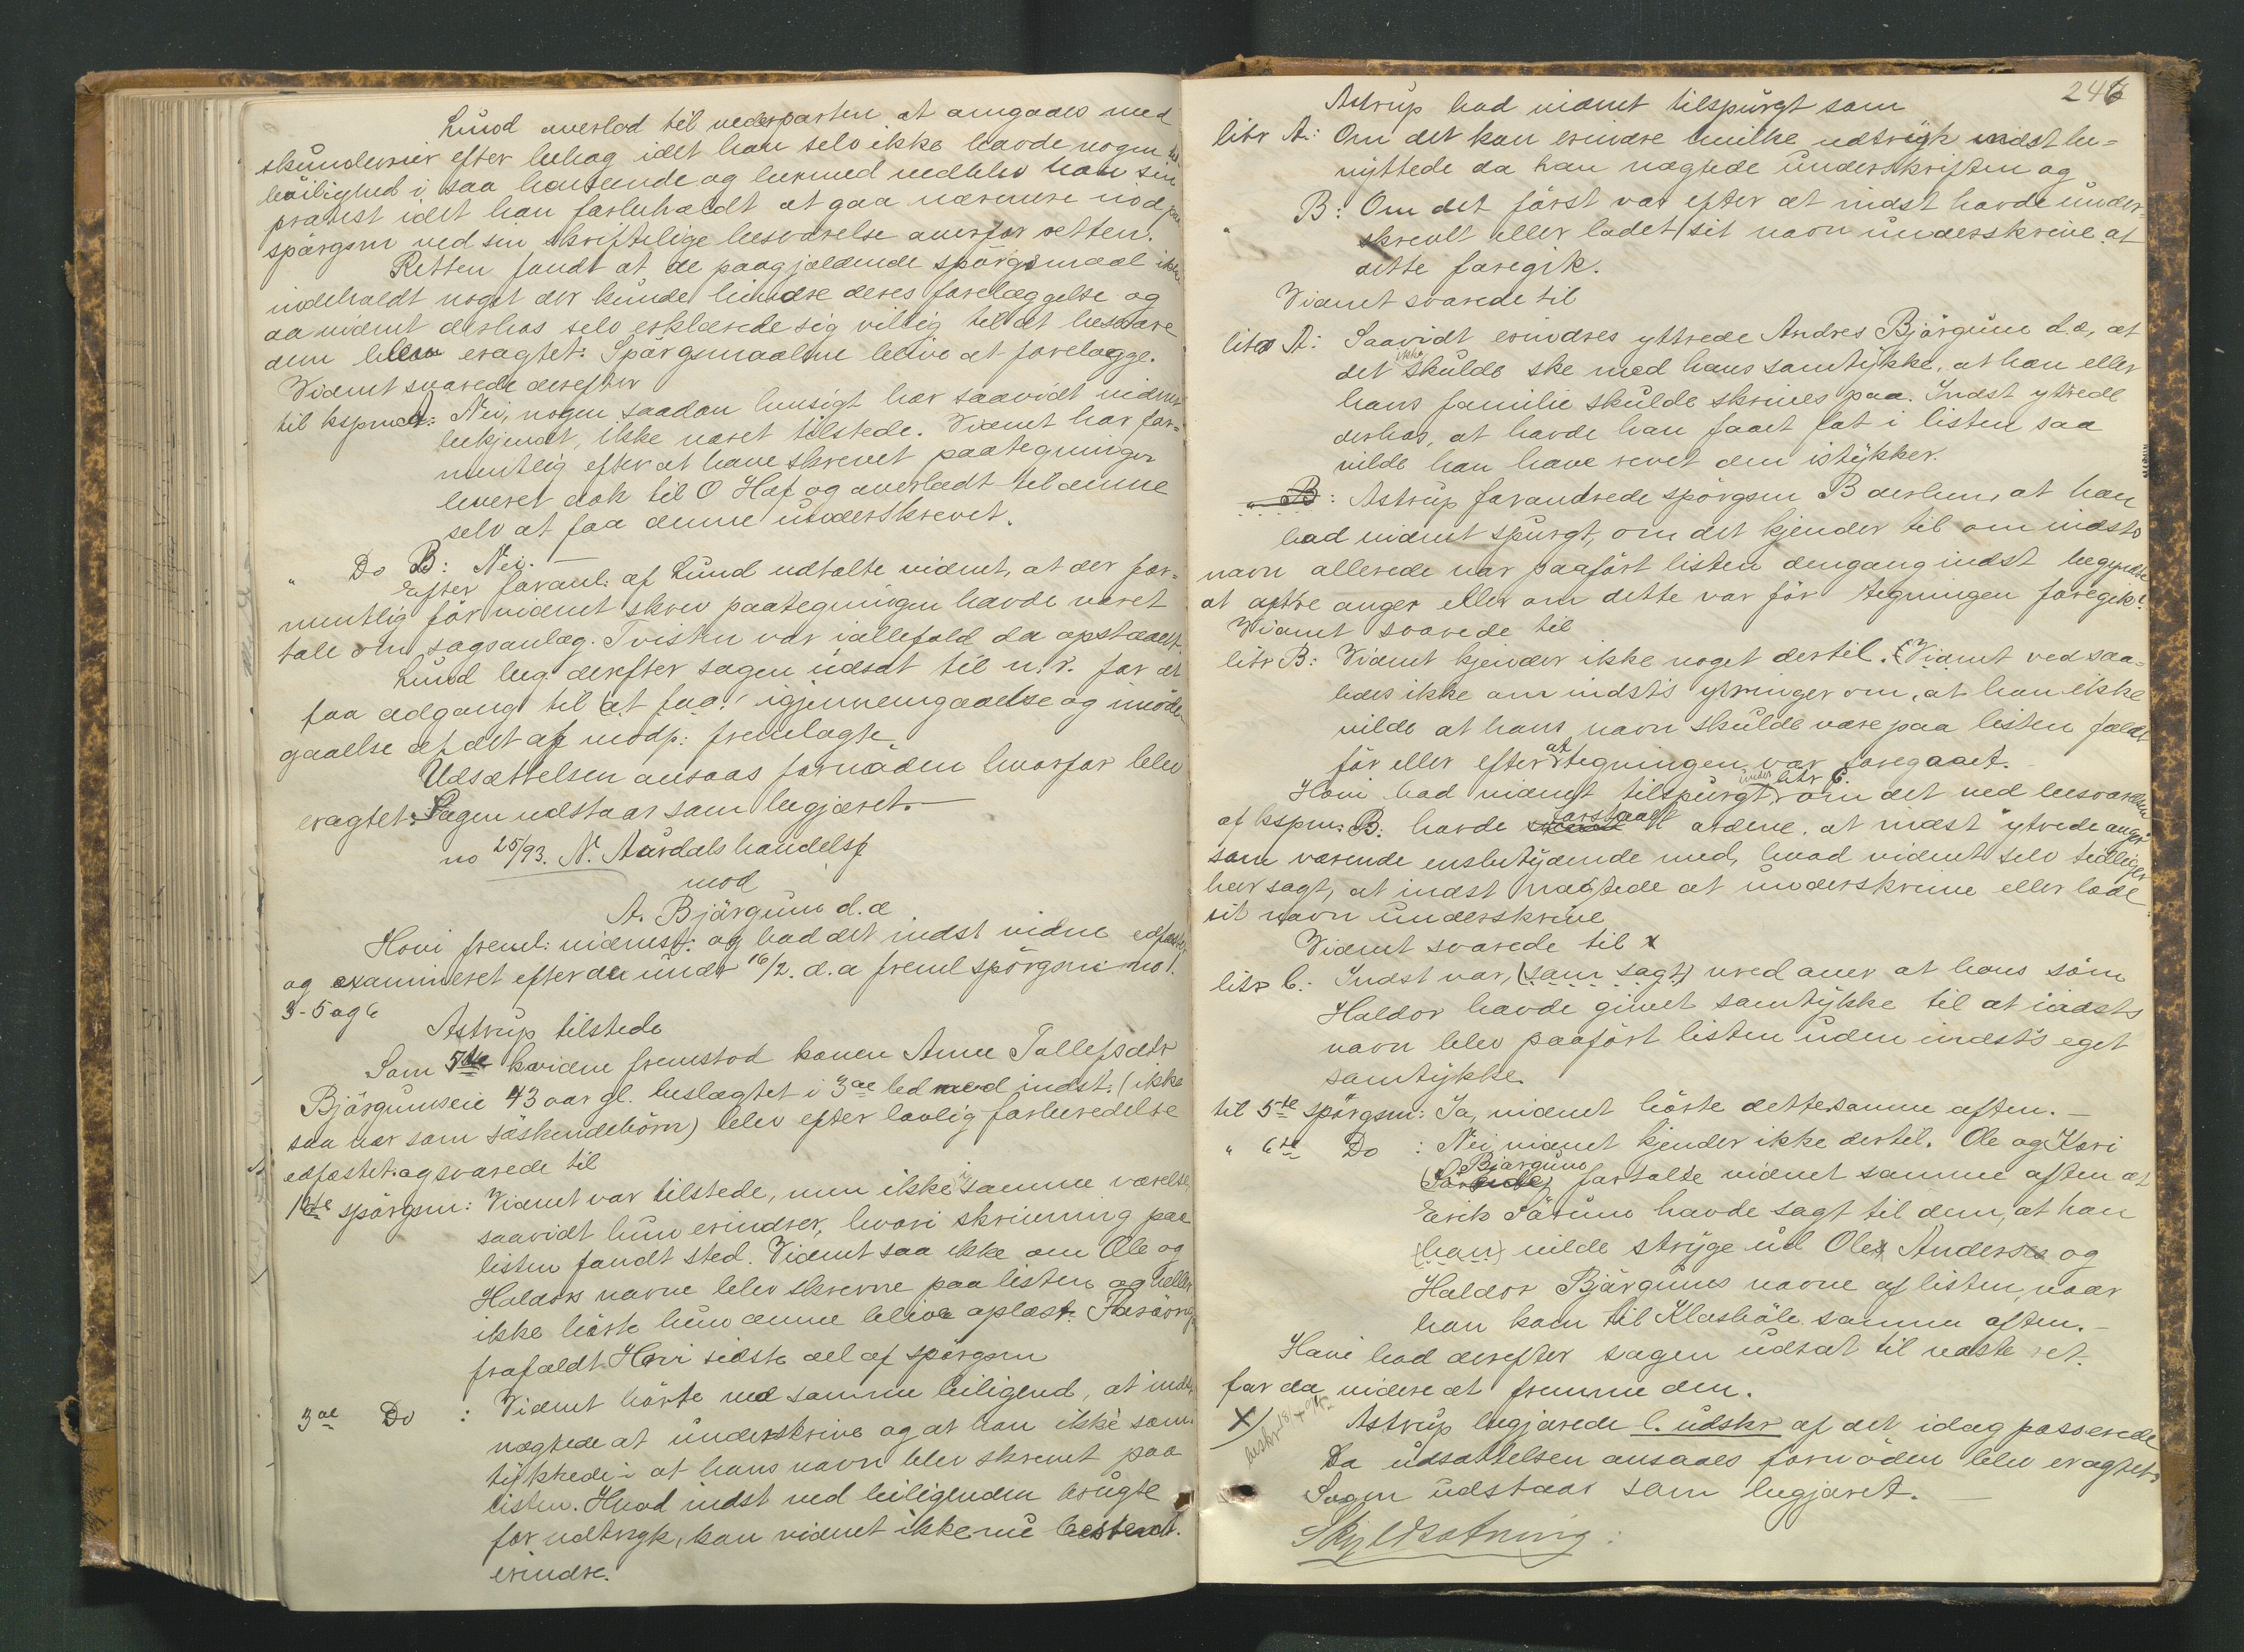 Lund overlod til vederparten at omgaaes med
skunderier efter behag idet han selv ikke havde nogen be
beilighed i saa henseende og hermed nedblev han sin
protest idet han forbeholdt at gaa nærmere ind paa
spörgsm ved sin skriftelige besvarelse overfor retten.
Retten fandt at de paagjældende spörgsmaal ikke
indeholdt noget der kunde hindre deres forelæggelse og
da vidnet derhos selv erklærede sig villig til at besvare
dem blev eragtet: Spörgsmaalene blive at forelægge.
Vidnet svarede derefter
til kspm A: Nei, nogen saadan hensigt har saavidt vidnet
bekjendt, ikke været tilstede. Vidnet har for-
mentlig efter at have skrevet paategningen
leveret dok til O Haf og overladt til denne
selv at faa denne underskrevet.
" Do B: Nei.
Efter foranl: af Lund udtalte vidnet, at der for-
mentlig för vidnet skrev paategningen havde været
tale om sagsanlæg. Tvisten var iallefald da opstaaet.
Lund beg. derefter sagen udsat til n. r. for at
faa adgang til at faa igjennemgaaelse og imöde-
gaaelse af det af modp: fremlagte
Udsættelsen ansaas fornöden hvorfor blev
eragtet: Sagen udstaar som begjæret.
no 25/93. N. Aurdals handelsf
mod
A. Bjørgum d.æ
Hovi freml: vidnest: og bad det indst vidne edfæstet
og examineret efter de under 16/2. d.a freml spörgsm no 1.
3-5 og 6
Astrup tilstede
Som 7de kvidne fremstod konen Anne Tollefsdtr
Bjørgumseie 43 aar gl. beslægtet i 3de led med indst. (ikke
saa nær som söskendebörn) blev efter lovlig forberedelse
edfæstet og svarede til
1ste spörgsm: Vidnet var tilstede, men ikke i samme værelse,
saavidt hun erindrer, hvori skrivning paa
listen fandt sted. Vidnet saa ikke om Ole og
Haldors navne blev skrevne paa listen og heller
ikke hörte hun denne blive oplæst. Foröovrigt
frafaldt Hovi sidste del af spörgsm
3de Do : Vidnet hörte ved samme leiligend, at indst
nægtede at underskrive og at han ikke sam-
tykkede i at hans navn blev skrevet paa
listen. Hvad indst ved leiligenden brugte
for udtryk, kan vidnet ikke nu bestemt.
erindre.
246
Astrup bad vidnet tilspurgt som
litr A: Om det kan erindre hvilke udtryk indst be-
nyttede da han nægtede underskriften og
" B: Om det först var efter at indst havde under-
skrevet eller ladet sit navn underskrive at
dette foregik.
Vidnet svarede til
litr A: Saavidt erindres yttrede Andres Bjørgum d.æ, at
det ikke skulde ske med hans samtykke, at han eller
hans familie skulde skrives paa. Indst yttrede
derhos, at havde han faaet fat i listen saa
vilde han have revet den istykker.
" B: Astrup forandrede spörgsm B derhen, at han
bad vidnet spurgt, om det kjender til om indsts
navn allerede var paafört listen dengang indst begyndte
at yttre anger eller om dette var för tegningen foregik?
Vidnet svarede til
litr B: Vidnet kjender ikke noget dertil. (Vidnet ved saa-
ledes ikke om indst's ytringer om, at han ikke
vilde at hans navn skulde være paa listen faldt
för eller efter at tegningen var foregaaet.
Hovi bad vidnet tilspurgt under litr C. om det ved besvarelsen
af kspm: B: havde forstaaet ordene, at indst "ytrede anger"
som værende ensbetydende med, hvad vidnet selv tidligere
har sagt, at indst nægtede at underskrive eller lade
sit navn underskrive
Vidnet svarede til x
litr C: Indst var, (som sagt) vred over at hans sön
Haldor havde givet samtykke til at indsts
navn blev paafört listen uden indst's eget
samtykke.
til 5te spörgsm: Ja, vidnet hörte dette samme aften.
" 6te Do : Nei vidnet kjender ikke dertil. Ole og Kari
Bjørgum fortalte vidnet samme aften at
Erik Sörum havde sagt til dem, at han
(han) vilde stryge ud Ole, Anders og
Haldor Bjørgums navne af listen, naar
han kom til Klashöle samme aften.
Hovi bad derefter sagen udsat til næste ret.
for da videre at fremme den.
X) Astrup begjærede b. udskr af det idag passerede
Da udsættelsen ansaaes fornöden blev eragtet:
Sagen udstaar som begjæret.
Skyldsætning: